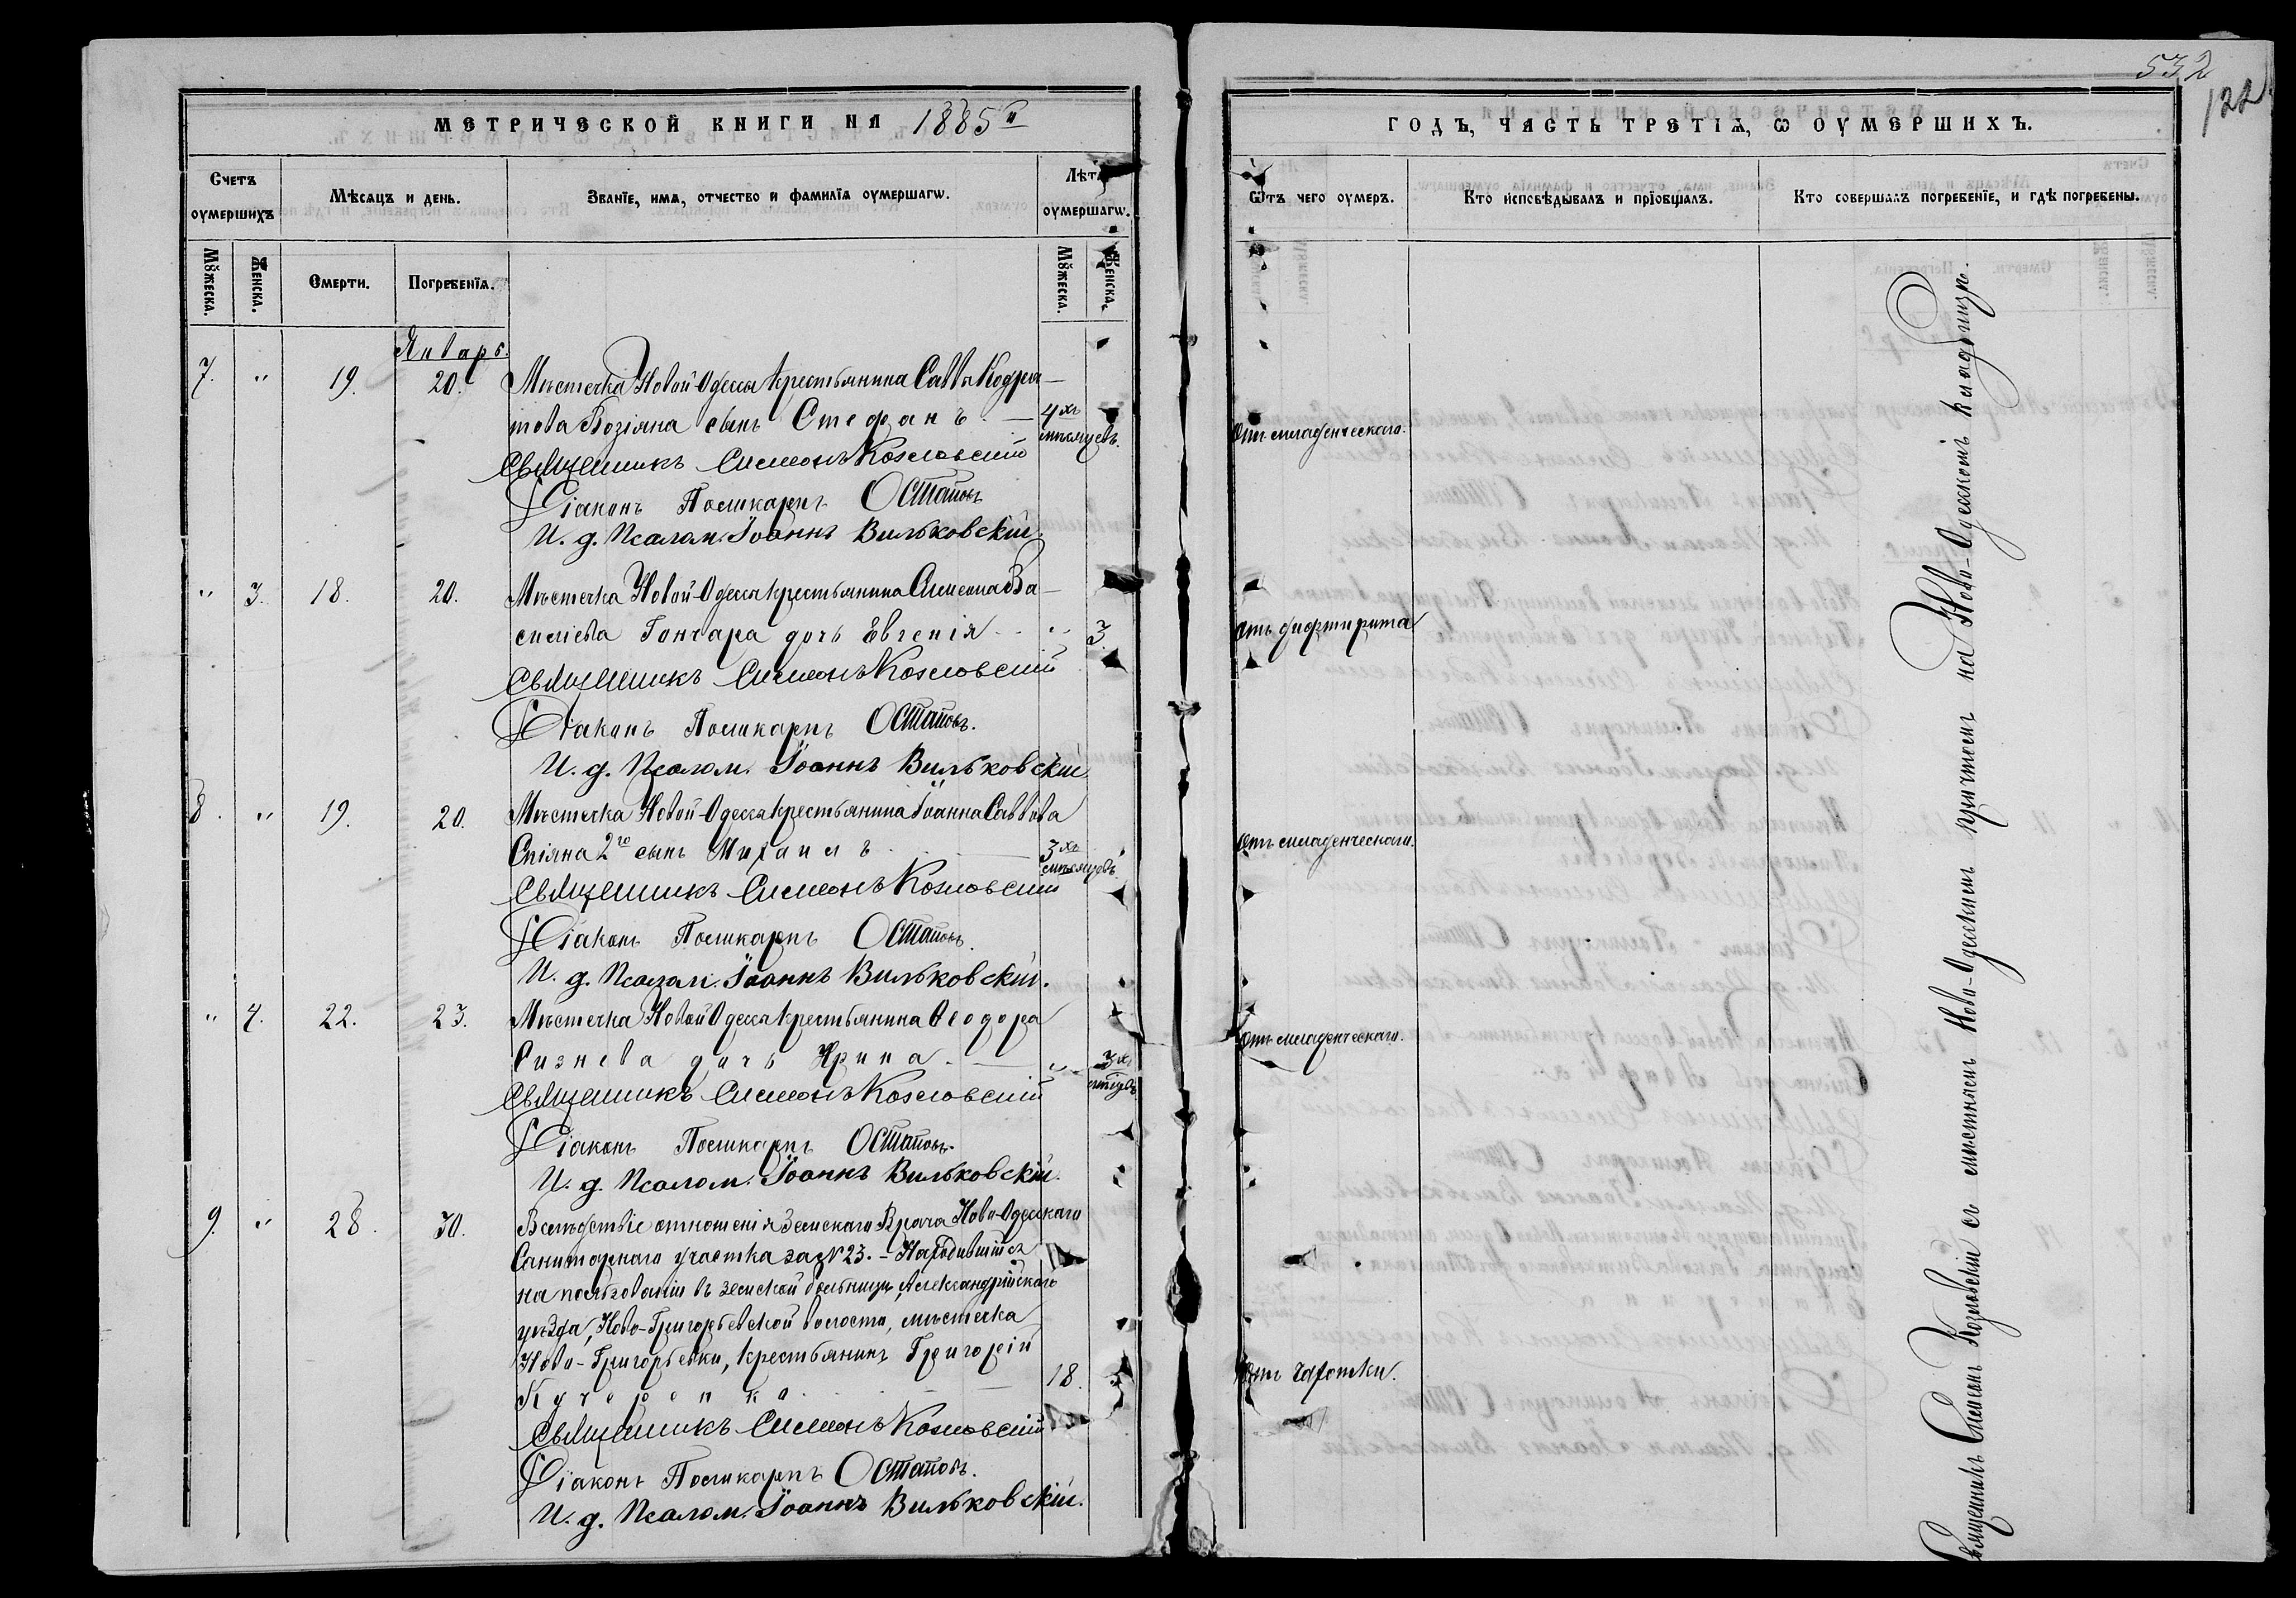 532
122
МЕТРИЧЕСКОЙ КНИГИ НА 1885й
ГОДЪ, ЧАСТЬ ТРЕТІѦ, Ѡ ОУМЕРШИХЪ.
Счетъ оумершихъ
Мѣсѧцъ и день.
Званїе, имѧ, отчество и фамилїѧ оумершагѡ.
Лѣта оумершагѡ.
Ѿтъ чего оумеръ.
Кто исповѣдывалъ и прїобщалъ.
Кто совершалъ погребенїе, и гдѣ погребены.
Мꙋжеска.
Женска.
Смерти.
Погребенїѧ.
Мꙋжеска.
Женска.
Январь.
7. " 19. 20. Мѣстечка Новой-Одессы крестьянина Саввы Кодра-
това Бозіяна сынъ Стефанъ. — 4хъ мѣсяцевъ. Отъ младенческаго.
Священникъ Симеонъ Козловскій
Діаконъ Поликарпъ Остаповъ
И. д. Псалом. Іоаннъ Вильковскій.
" 3. 18. 20. Мѣстечка Новой-Одессы крестьянина Симеона Ва-
силіева Гончара дочь Евгенія " 3. Отъ дифтирита
Священникъ Симеонъ Козловскій
Діаконъ Поликарпъ Остаповъ.
И. д. Псалом. Іоаннъ Вильковскій
8. " 19. 20. Мѣстечка Новой-Одессы крестьянина Іоанна Саввова
Спіяна 2го сынъ Михаилъ 3хъ мѣсяцевъ. Отъ младенческаго.
Священникъ Симеонъ Козловскій
Діаконъ Поликарпъ Остаповъ.
И. д. Псалом. Іоаннъ Вильковскій.
" 4. 22. 23. Мѣстечка Новой Одессы крестьянина Ѳеодора
Сизнева дочь Ирина. " 3хъ Отъ младенческаго.
Священникъ Симеонъ Козловскій
Діаконъ Поликарпъ Остаповъ.
И. д. Псалом. Іоаннъ Вильковскій.
9. " 28. 30. Вслѣдствіе отношенія Земскаго Врача Ново-Одесскаго
Санитарнаго участка за № 23. – Находившійся
на пользованіи въ земской больницѣ, Александрійскаго
уѣзда, Ново-Григорьевской волости, мѣстечка
Ново-Григорьевки, крестьянинъ Григорій
Кучеренко. 18. Отъ чахотки.
Священникъ Симеонъ Козловскій
Діаконъ Поликарпъ Остаповъ.
И. д. Псалом. Іоаннъ Вильковскій.
Священникъ Симеонъ Козловскій съ мѣстнымъ Ново-Одесскимъ причтомъ на Ново-Одесскомъ кладбищѣ.